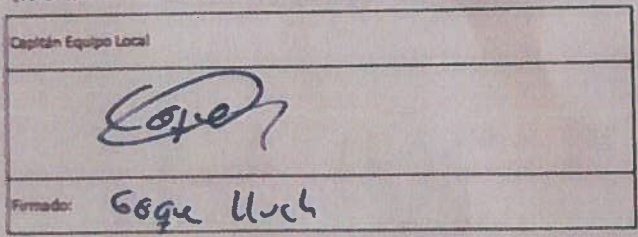 Capitán Equipo Local
Firmado: Goque Lluch